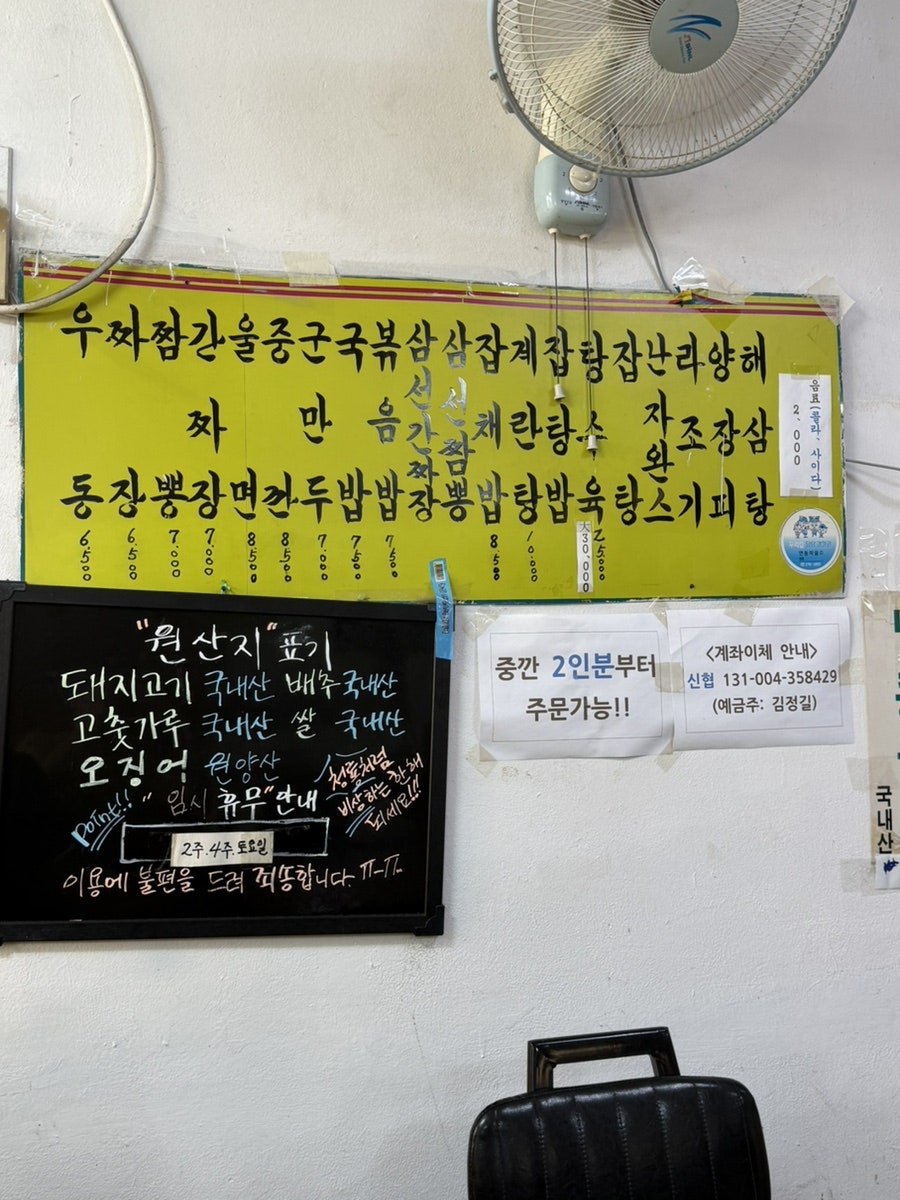 우동 6,500
짜장 6,500
짬뽕 7,000
간짜장 7,000
울면 8,500
중깐 8,500
군만두 7,000
국밥 7,500
볶음밥 7,500
삼선간짜장
삼선짬뽕
잡채밥 8,500
계란탕 10,000
잡탕밥
탕수육 大30,000 25,000
잡탕
난자완스
라조기
양장피
해삼탕
음료(콜라, 사이다)
2,000
"원산지" 표기
돼지고기 국내산 배추 국내산
고춧가루 국내산 쌀 국내산
오징어 원양산
청룡처럼
비상하는 한해
되세요!!!
point!! " 임시 휴무" 안내
2주.4주.토요일
이용에 불편을 드려 죄송합니다. ㅠ-ㅠ
중깐 2인분부터
주문가능!!
<계좌이체 안내>
신협 131-004-358429
(예금주: 김정길)
국내산